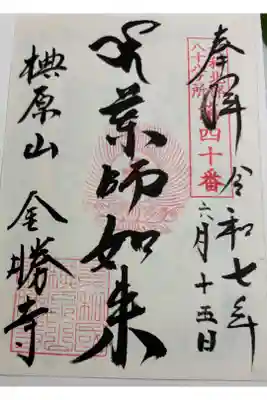 奉拝 令和七年
六月十五日
八十八ヶ所
四十番
薬師如来
椣原山 金勝寺